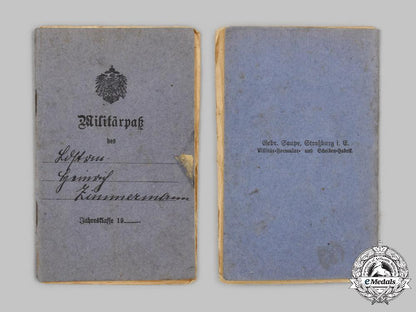 Militärpaß
des
Ldstm
Heinrich
Zimmermann
Jahresklasse 19
Gebr. Saupe, Straßburg i. E.
Militär-Formular- und Scheiben-Fabrik.
eMedals